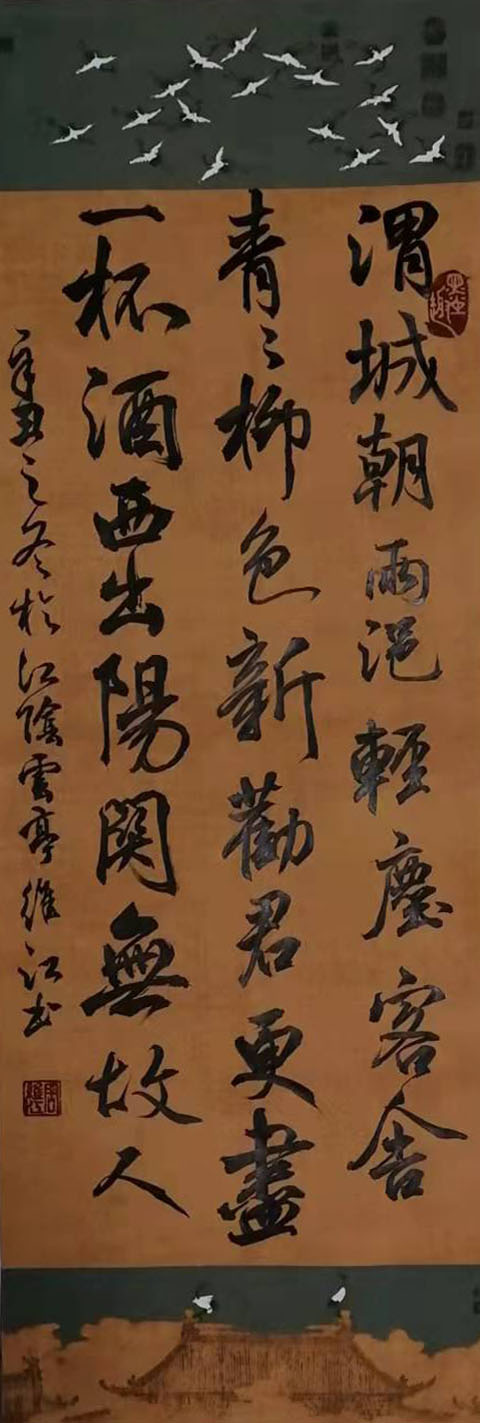 渭城朝雨浥輕塵客舍
青〻柳色新勸君更盡
一杯酒西出陽関無故人
辛丑之冬於江陰雲亭維江书